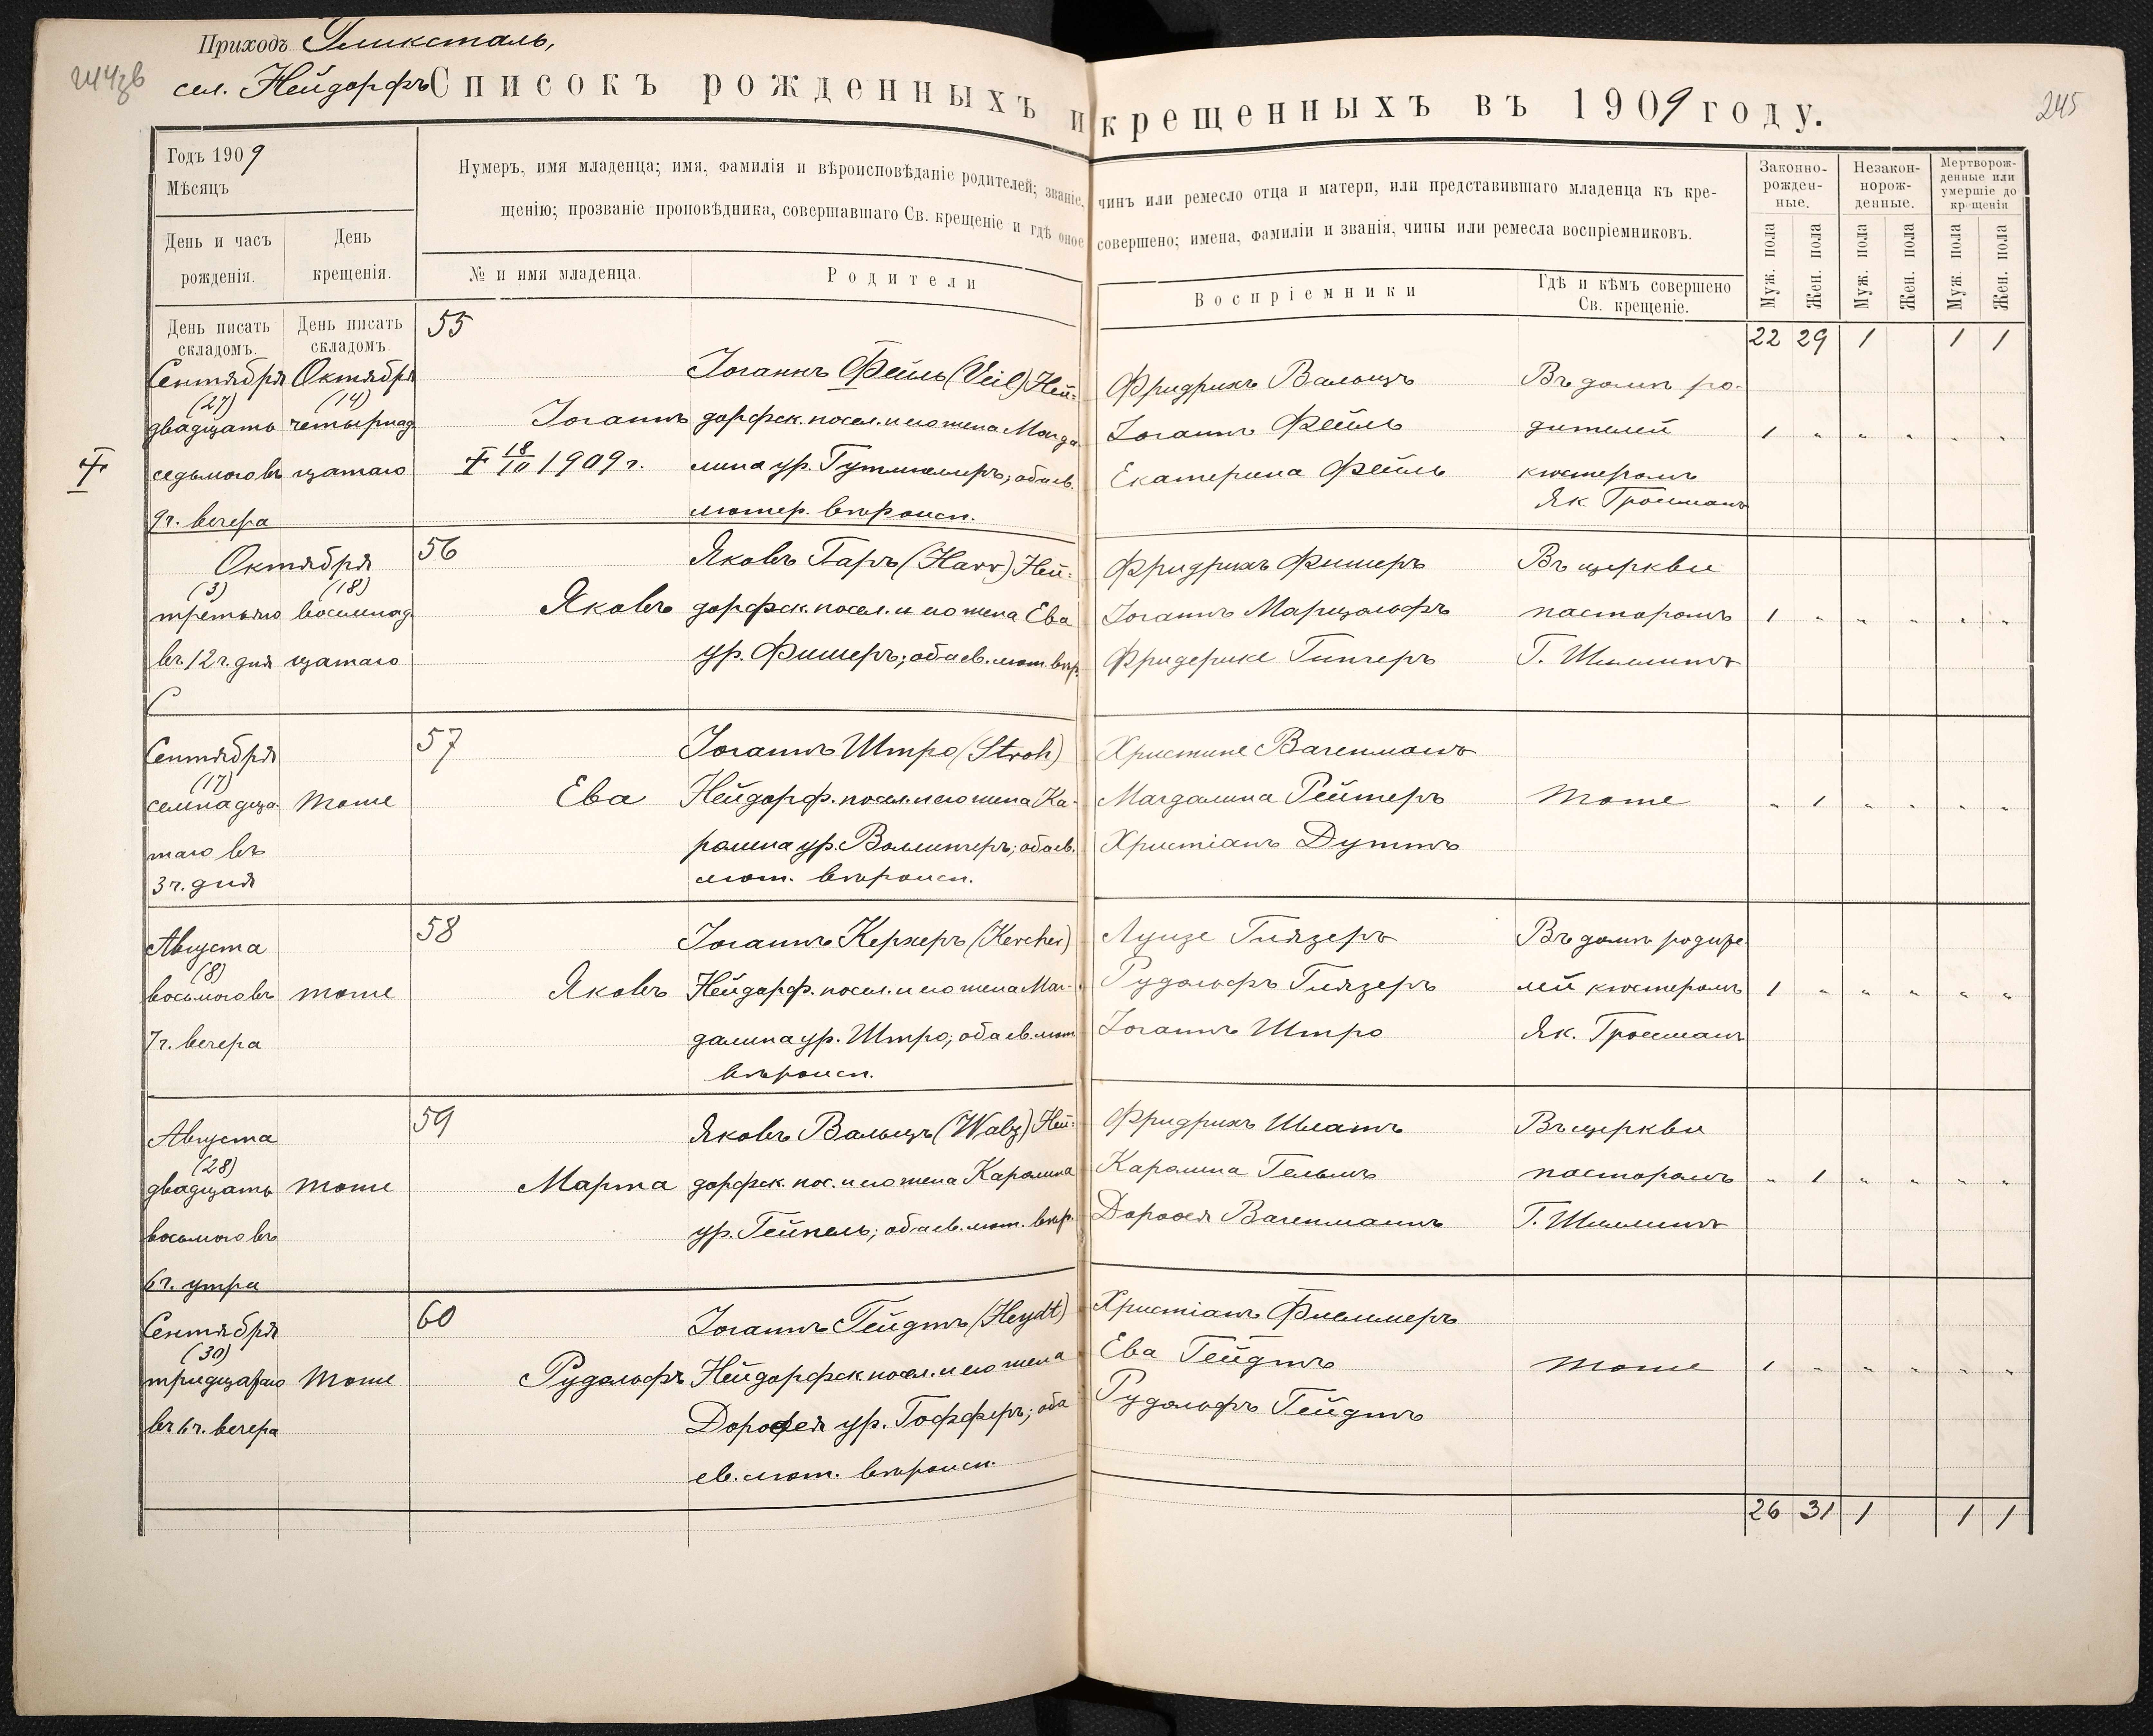 Приходъ Глюксталь,
сел. Нейдорфъ
Списокъ рожденныхъ и крещенныхъ въ 1909 году.
245
Годъ 1909
Мѣсяцъ
День и часъ рожденія.
День крещенія.
Нумеръ, имя младенца; имя, фамилія и вѣроисповѣданіе родителей; званіе, чинъ или ремесло отца и матери, или представившаго младенца къ кре-
щенію; прозваніе проповѣдника, совершавшаго Св. крещеніе и гдѣ оное совершено; имена, фамиліи и званія, чины или ремесла воспріемниковъ.
№ и имя младенца.
Родители
Воспріемники
Гдѣ и кѣмъ совершено
Св. крещеніе.
Законно-
рожден-
ные.
Незакон-
норож-
денные.
Мертворож-
денные или
умершіе до
крещенія
Муж. пола
Жен. пола
Муж. пола
Жен. пола
Муж. пола
Жен. пола
День писать
складомъ.
День писать
складомъ.
22 29 1 1 1
55
Сентября
(27)
двадцать
седьмого въ
9 ч. вечера
Октября
(14)
четырнад
цатаго
Іоганнъ
† 18/10 1909 г.
Іоганнъ Фейль (Veil) Ней-
дорфск. посел. и его жена Магда
лина ур. Гутмиллеръ; оба ев.
лютер. вѣроисп.
Фридрихъ Вальцъ
Іоганнъ Фейль
Екатерина Фейль
Въ домѣ ро-
дителей
кюстеромъ
Як. Гроссманъ
1 " " " " "
56
Октября
(3)
третьяго
въ 12 ч. дня
(18)
восемнад
цатаго
Яковъ
Яковъ Гаръ (Harr) Ней-
дорфск. посел. и его жена Ева
ур. Фишеръ; оба ев. лют. вѣр.
Фридрихъ Фишеръ
Іоганнъ Марцольфъ
Фридерике Гингеръ
Въ церкви
пасторомъ
Г. Шиллингъ
1 " " " " "
57
Сентября
(17)
семнадца
таго въ
3 ч. дня
тоже
Ева
Іоганнъ Штро (Stroh)
Нейдорф. посел. и его жена Ка-
ролина ур. Воллингеръ; оба ев.
лют. вѣроисп.
Христине Вагенманъ
Магдалина Рейтеръ
Христіанъ Дуттъ
тоже
" 1 " " " "
58
Августа
(8)
восьмого въ
7 ч. вечера
тоже
Яковъ
Іоганнъ Керхеръ (Kercher)
Нейдорф. посел. и его жена Маг-
далина ур. Штро; оба ев. лют
вѣроисп.
Луизе Глязеръ
Рудольфъ Глязеръ
Іоганнъ Штро
Въ домѣ родите
лей кюстеромъ
Як. Гроссманъ
1 " " " " "
59
Августа
(28)
двадцать
восьмого въ
6 ч. утра
тоже
Марта
Яковъ Вальцъ (Walz) Ней-
дорфск. пос. и его жена Каролина
ур. Гейпель; оба ев. лют. вѣр.
Фридрихъ Шлатъ
Каролина Гельмъ
Дороѳея Вагенманнъ
Въ церкви
пасторомъ
Г. Шиллингъ
" 1 " " " "
60
Сентября
(30)
тридцатаго
въ 6 ч. вечера
тоже
Рудольфъ
Іоганнъ Гейдтъ (Heydt)
Нейдорфск посел. и его жена
Дороѳея ур. Гофферъ; оба
ев. лют. вѣроисп.
Христіанъ Филлмеръ
Ева Гейдтъ
Рудольфъ Гейдтъ
тоже
1 " " " " "
26 31 1 1 1